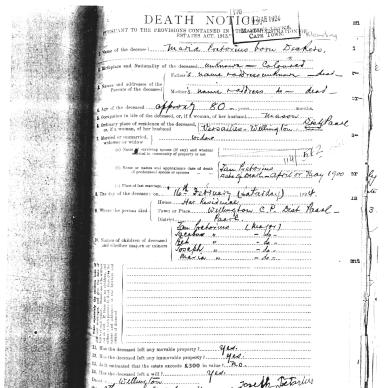 DEATH NOTICE
PURSUANT TO THE PROVISIONS CONTAINED IN
ESTATES ACT, 1913.
CAPE TOWN
1. Name of the deceased Maria Pretorius born
2. Birthplace and Nationality of the deceased unknown - Coloured
3. Names and addresses of the Parents of the deceased
Father's name + address unknown - dead
Mother's name + address do - dead
4. Age of the deceased approx 80 years months
5. Occupation in life of the deceased, or, if a woman, of her husband Mason
6. Ordinary place of residence of the deceased, or, if a woman, of her husband Versailles - Wellington Dist Paarl
7. Married or unmarried, widower or widow widow
(a) Name of surviving spouse (if any) and whether married in community of property or not
(b) Name or names and approximate date of death of predeceased spouse or spouses
Jan Pretorius
date of death - April or May 1900
(c) Place of last marriage
8. The day of the decease on 16th February (Saturday) 1924
9. Where the person died
House Her Residence
Town or Place Wellington C.P. Dist Paarl
District Paarl
10. Names of children of deceased and whether majors or minors
Jan Pretorius (Major)
Jacobus " - do -
" - do -
Joseph " - do -
Maria " - do -
11. Has the deceased left any movable property? Yes.
12. Has the deceased left any immovable property? Yes.
13. Is it estimated that the estate exceeds £300 in value? No.
14. Has the deceased left a will? Yes.
Dated at Wellington
Joseph